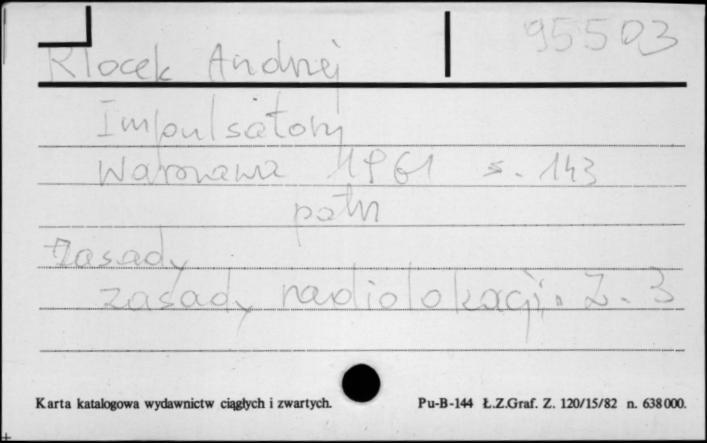 95503
Klocek Andrzej
Impulsatory
Warszawa 1961 s. 143
patrz
Zasady
zasady radiolokacji. Z. 3
Karta katalogowa wydawnictw ciągłych i zwartych.
Pu-B-144 Ł.Z.Graf. Z. 120/15/82 n. 638000.